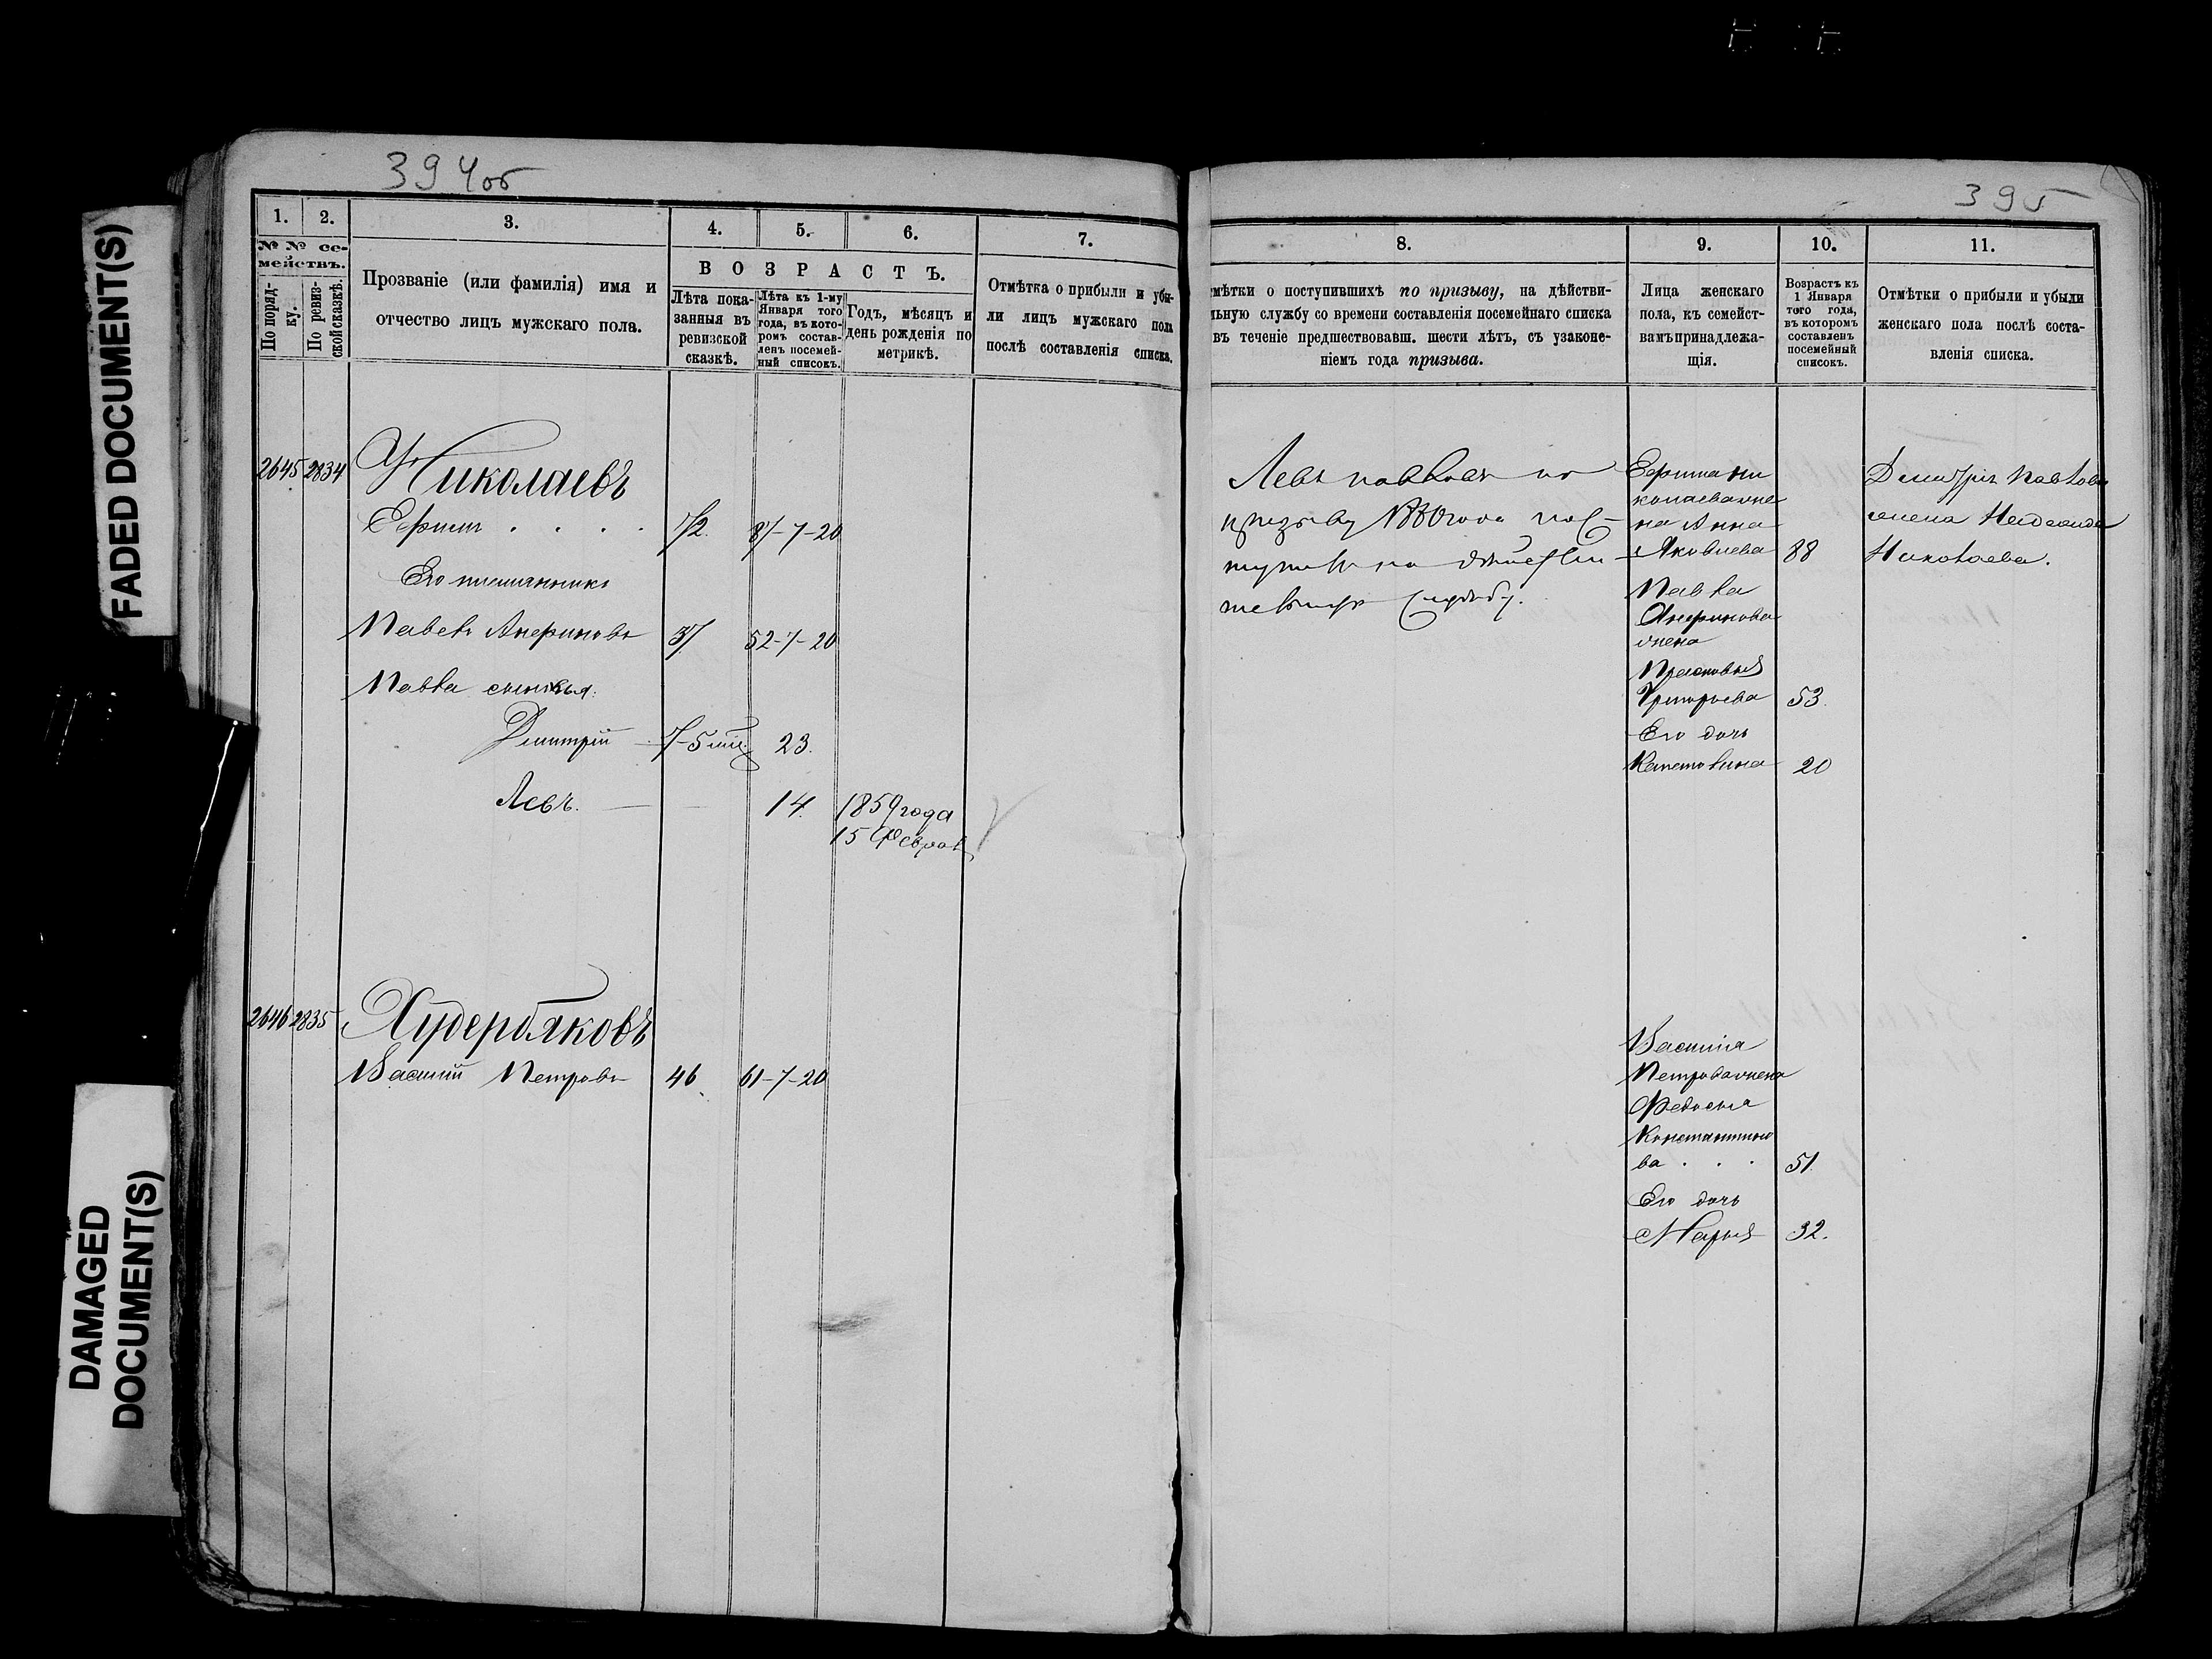 FADED DOCUMENT(S)
DAMAGED
DOCUMENT(S)
394об
1. 2. 3. 4. 5. 6. 7.
№ № се-
мействъ.
По поряд-
ку.
По ревиз-
ской сказкѣ.
Прозваніе (или фамилія) имя и
отчество лицъ мужскаго пола.
ВОЗРАСТЪ.
Лѣта пока-
занныя въ
ревизской
сказкѣ.
Лѣта къ 1-му
Января того
года, въ кото-
ромъ состав-
ленъ посемей-
ный списокъ.
Годъ, мѣсяцъ и
день рожденія по
метрикѣ.
Отмѣтка о прибыли и убы-
ли лицъ мужскаго пола
послѣ составленія списка.
2645 2834 Николаевъ
Ефимъ . . . . 72. 87-7-20
Его племянникъ
Павелъ 37 52-7-20
Павла сыновья:
Дмитрій 7-5 мѣс. 23.
Левъ. — — 14. 1859 года
15 Феврал
2646 2835 Худербяковъ
Василій Петровъ 46. 61-7-20
395
8. 9. 10. 11.
мѣтки о поступившихъ по призыву, на дѣйстви-
льную службу со времени составленія посемейнаго списка
въ теченіе предшествовавш. шести лѣтъ, съ узаконе-
ніемъ года призыва.
Лица женскаго
пола, къ семейст-
вамъ принадлежа-
щія.
Возрастъ къ
1 Января
того года,
въ которомъ
составленъ
посемейный
списокъ.
Отмѣтки о прибыли и убыли
женскаго пола послѣ соста-
вленія списка.
Левъ Павловъ по
призыву 1880 года пос-
тупилъ на дѣйстви-
тельную службу.
Ефима Ни
колаева же
на Анна
Яковлева 88
Павла
жена
Прасковья
Григорьева 53.
Его дочь
Капетолина 20
Дмитрія Павлова
жена
Николаева.
Василія
Петрова жена
Федосья
Константино
ва . . . 51.
Его дочь
Марья 32.